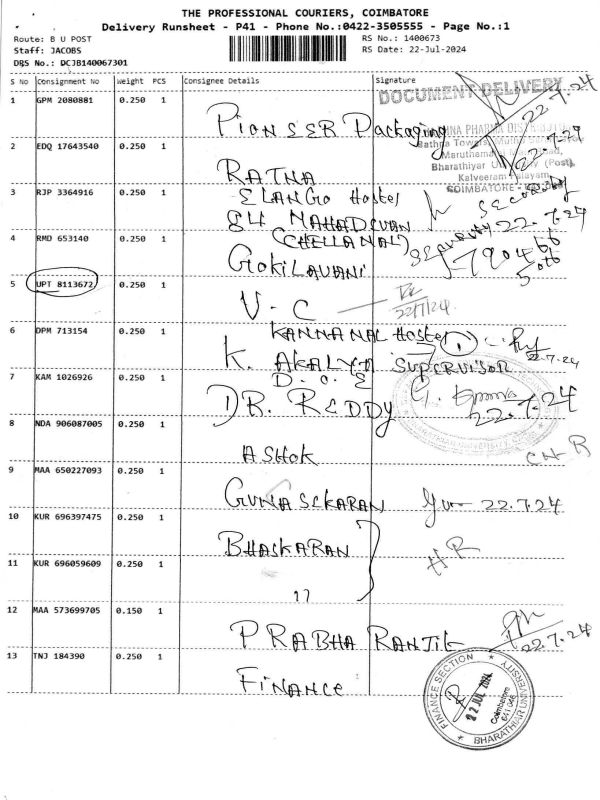 THE PROFESSIONAL COURIERS, COIMBATORE
Delivery Runsheet - P41 - Phone No.:0422-3505555 - Page No.:1
Route: B U POST
RS No.: 1400673
Staff: JACOBS
RS Date: 22-Jul-2024
DRS No.: DCJB140067301
S No Consignment No Weight PCS Consignee Details Signature
DOCUMENT DELIVERY
1 GPM 2080881 0.250 1
22.7.24
PIONEER Packaging
2 EDQ 17643540 0.250 1
22.7.24
Maruthamalai
Bharathiyar (Post),
Kalveeram Palayam,
COIMBATORE
RATNA
3 RJP 3364916 0.250 1
ELANGO Hostel
SECURITY
84 MAHADEVAN
22.7.24
4 RMD 653140 0.250 1
(CHELLAMAL)
SECURITY
790466
GOKILAVANI
5 UPT 8113672 0.250 1
V-C
22/7/24
6 DPM 713154 0.250 1
KANNAMAL Hostel
22.7.24
K. AKALYA SUPERVISOR
7 KAM 1026926 0.250 1
D.O.E
DR. REDDY
22.7.24
8 NDA 906087005 0.250 1
ASHOK
9 MAA 650227093 0.250 1
GUNASEKARAN
22.7.24
10 KUR 696397475 0.250 1
BHASKARAN
HR
11 KUR 696059609 0.250 1
12 MAA 573699705 0.150 1
22.7.24
13 TNJ 184390 0.250 1
FINANCE
FINANCE SECTION
22 JUL 2024
Coimbatore
641 046
BHARATHIAR UNIVERSITY